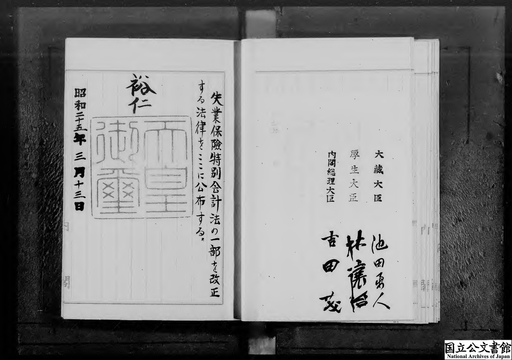 失業保険特別会計法の一部を改正
する法律をここに公布する。
裕仁
天皇
御璽
昭和二十五年三月十三日
大蔵大臣 池田勇人
厚生大臣 林譲治
内閣総理大臣 吉田茂
国立公文書館
National Archives of Japan